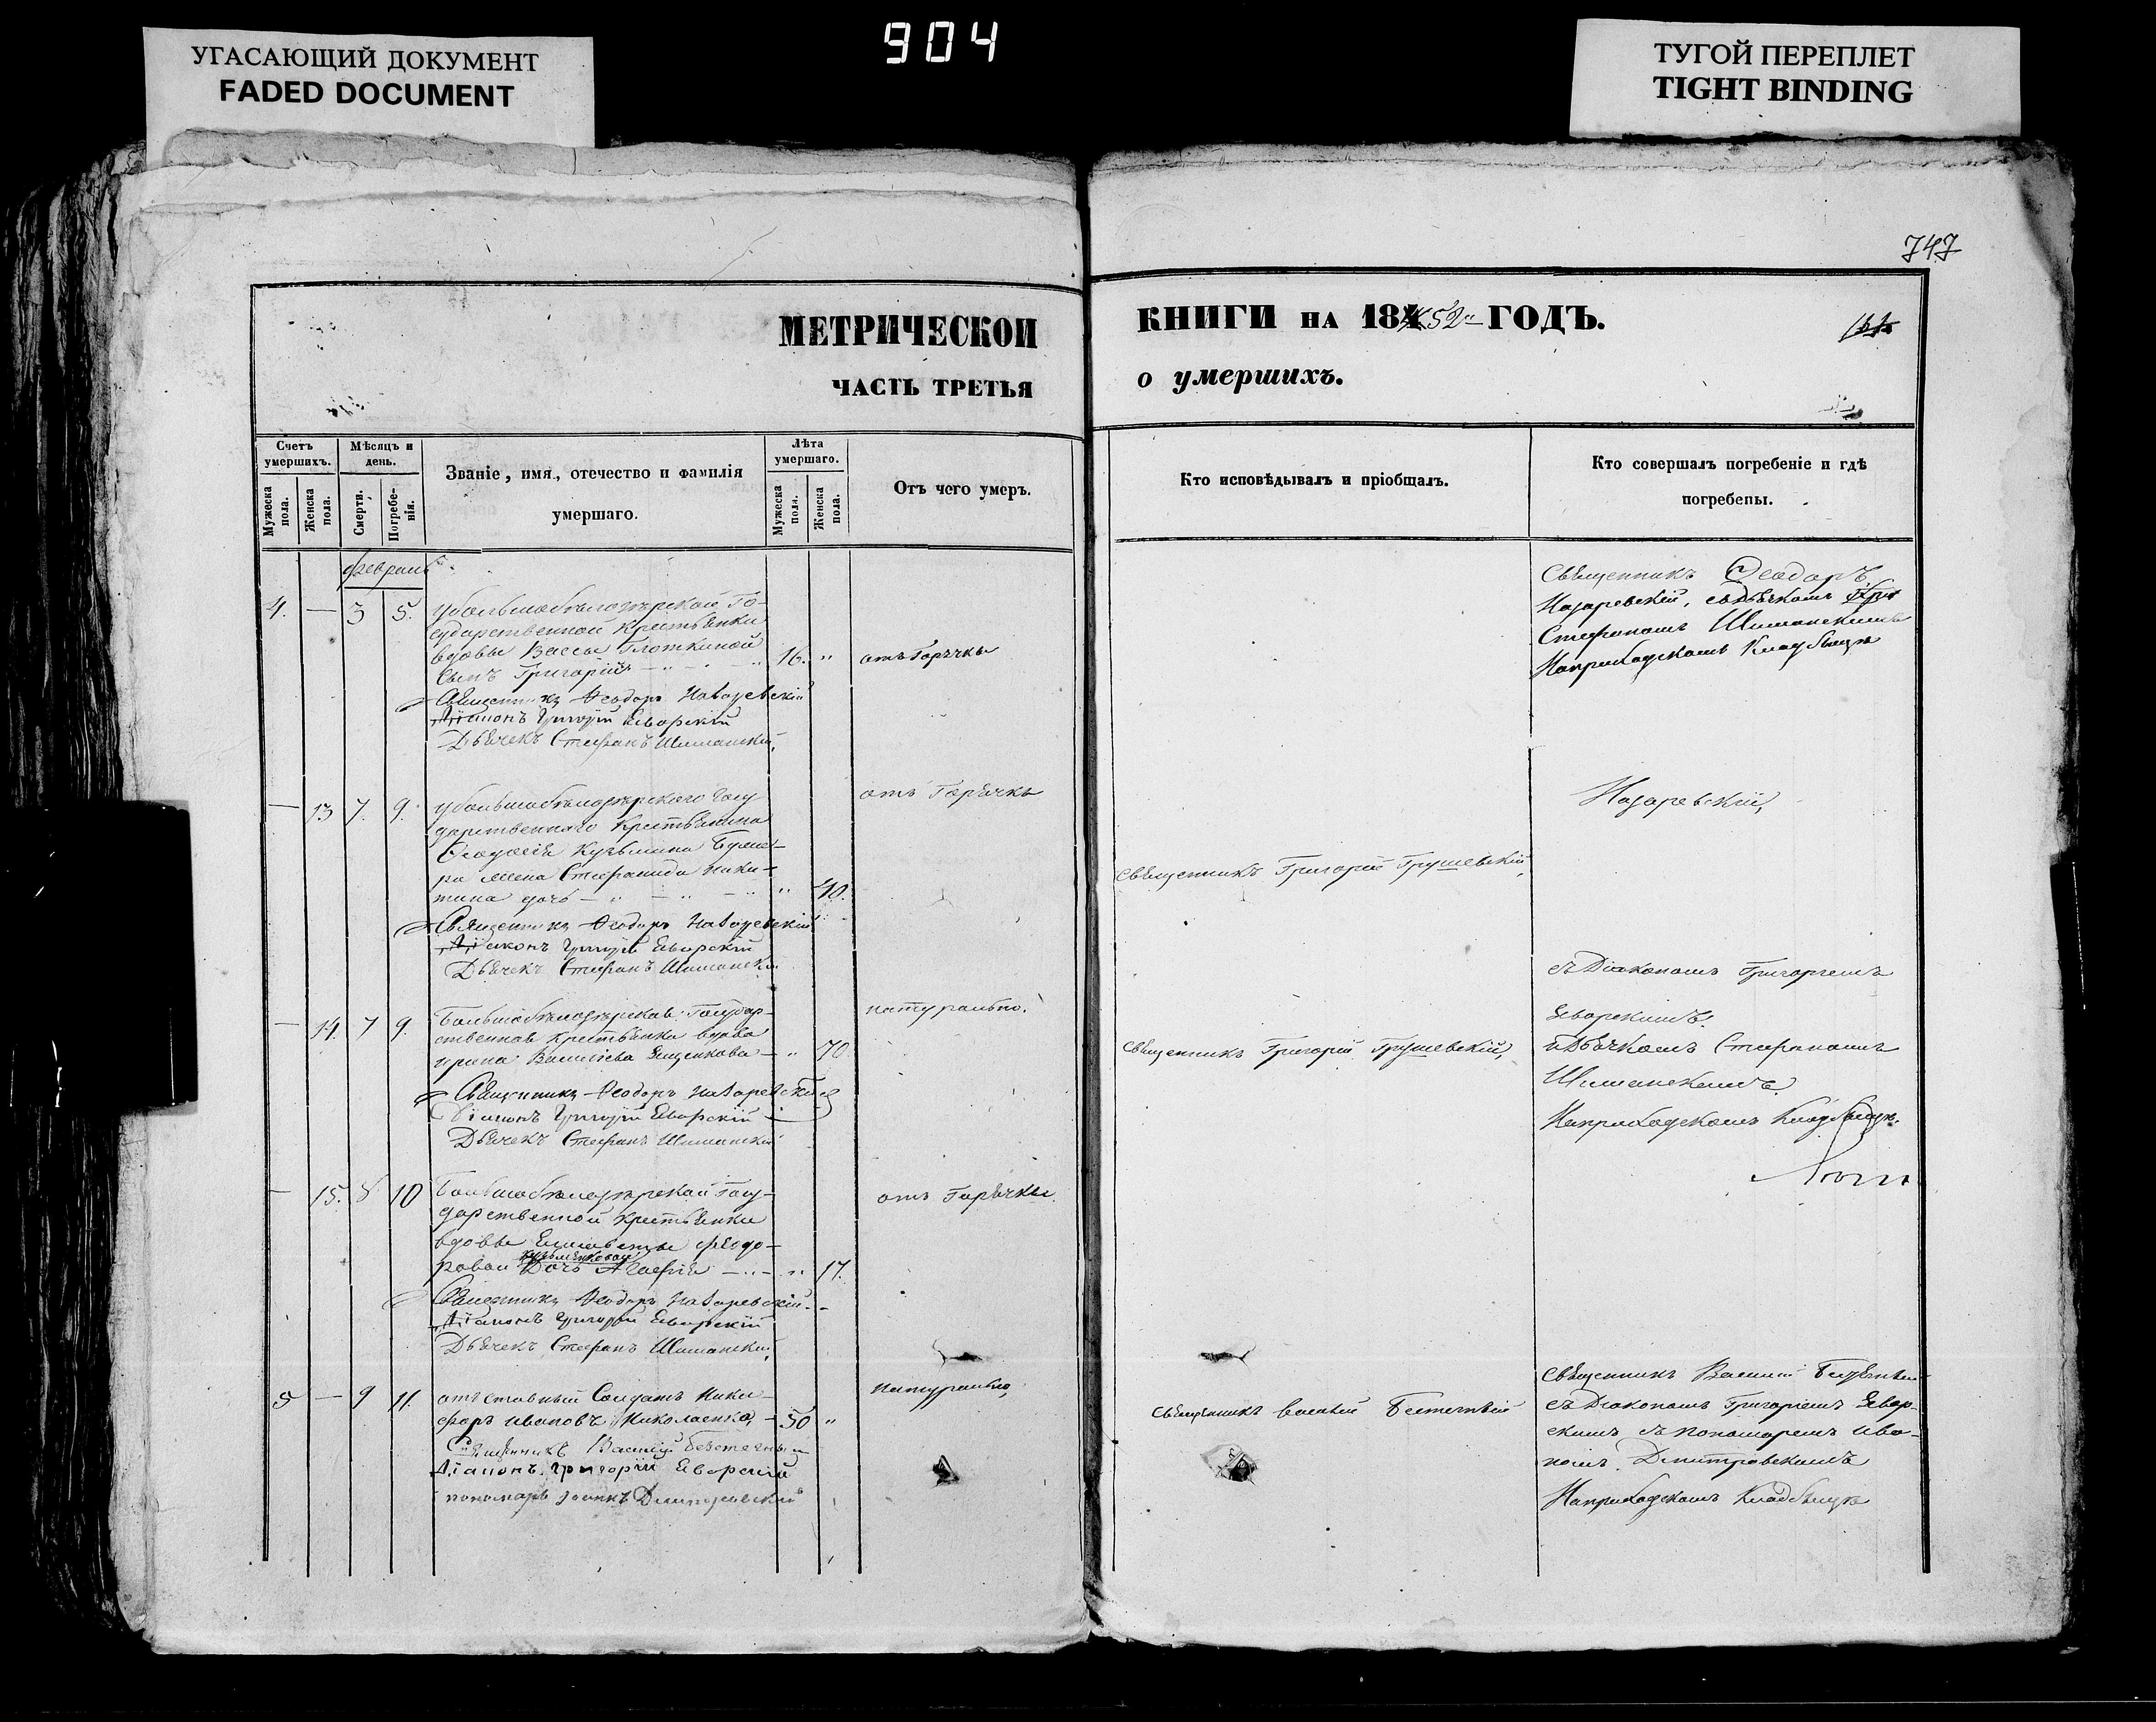 УГАСАЮЩИЙ ДОКУМЕНТ
FADED DOCUMENT
904
ТУГОЙ ПЕРЕПЛЕТ
TIGHT BINDING
747
МЕТРИЧЕСКОЙ
ЧАСТЬ ТРЕТЬЯ
КНИГИ НА 18 52 ГОДЪ.
о умершихъ.
Счетъ умершихъ.
Мужеска пола.
Женска пола.
Мѣсяцъ и день.
Смерти.
Погребенія.
Званіе, имя, отечество и фамилія
умершаго.
Лѣта умершаго.
Мужеска пола.
Женска пола.
Отъ чего умеръ.
Кто исповѣдывалъ и пріобщалъ.
Кто совершалъ погребеніе и гдѣ
погребены.
февраль
4. — 3 5.
Го-
сударственной крестьянки
вдовы Вассы Плоткиной
сынъ Григорій 16. " отъ Горячки
Священникъ Феодоръ Назаревскій
Діаконъ Григорій Яворскій
Дьячекъ Стефанъ Шиманскій
Священникъ Феодоръ
Назаревскій, съ Дьячкомъ
Стефаномъ Шиманскимъ
На приходскомъ Кладбищѣ
— 13 7. 9.
Госу
дарственнаго Крестьянина
Кузьмина
жена Стефанида Ники-
тина дочь " 40. отъ Горячки
Священникъ Феодоръ Назаревскій
Діаконъ Григорій Яворскій
Дьячекъ Стефанъ Шиманскій
Священникъ Григорій Грушевскій,
Назаревскій,
съ Діакономъ Григоріемъ
Яворскимъ.
и Дьячкомъ Стефаномъ
Шиманскимъ
На приходскомъ Кладбищѣ.
— 14. 7 9.
Государ-
ственная Крестьянка вдова
Васильева Ященкова " 70 натурально.
Священникъ Феодоръ Назаревскій
Діаконъ Григорій Яворскій
Дьячекъ Стефанъ Шиманскій
Священникъ Григорій Грушевскій,
— 15. 8 10
Госу-
дарственной Крестьянки
вдовы Елисаветы Федо-
ровой Дочь Агафія " 17. отъ Горячки
Священникъ Феодоръ Назаревскій
Діаконъ Григорій Яворскій
Дьячекъ Стефанъ Шиманскій
5 — 9 11.
отставный Солдатъ Ники-
форъ Ивановъ Николаенко, 50 " натурально,
Священникъ Василій
Діаконъ Григорій Яворскій
пономарь Іоаннъ Дмитровскій
Священникъ Василій
Священникъ Василій
съ Діакономъ Григоріемъ Явор-
скимъ съ пономаремъ Ива-
номъ Дмитровскимъ
На приходскомъ Кладбищѣ